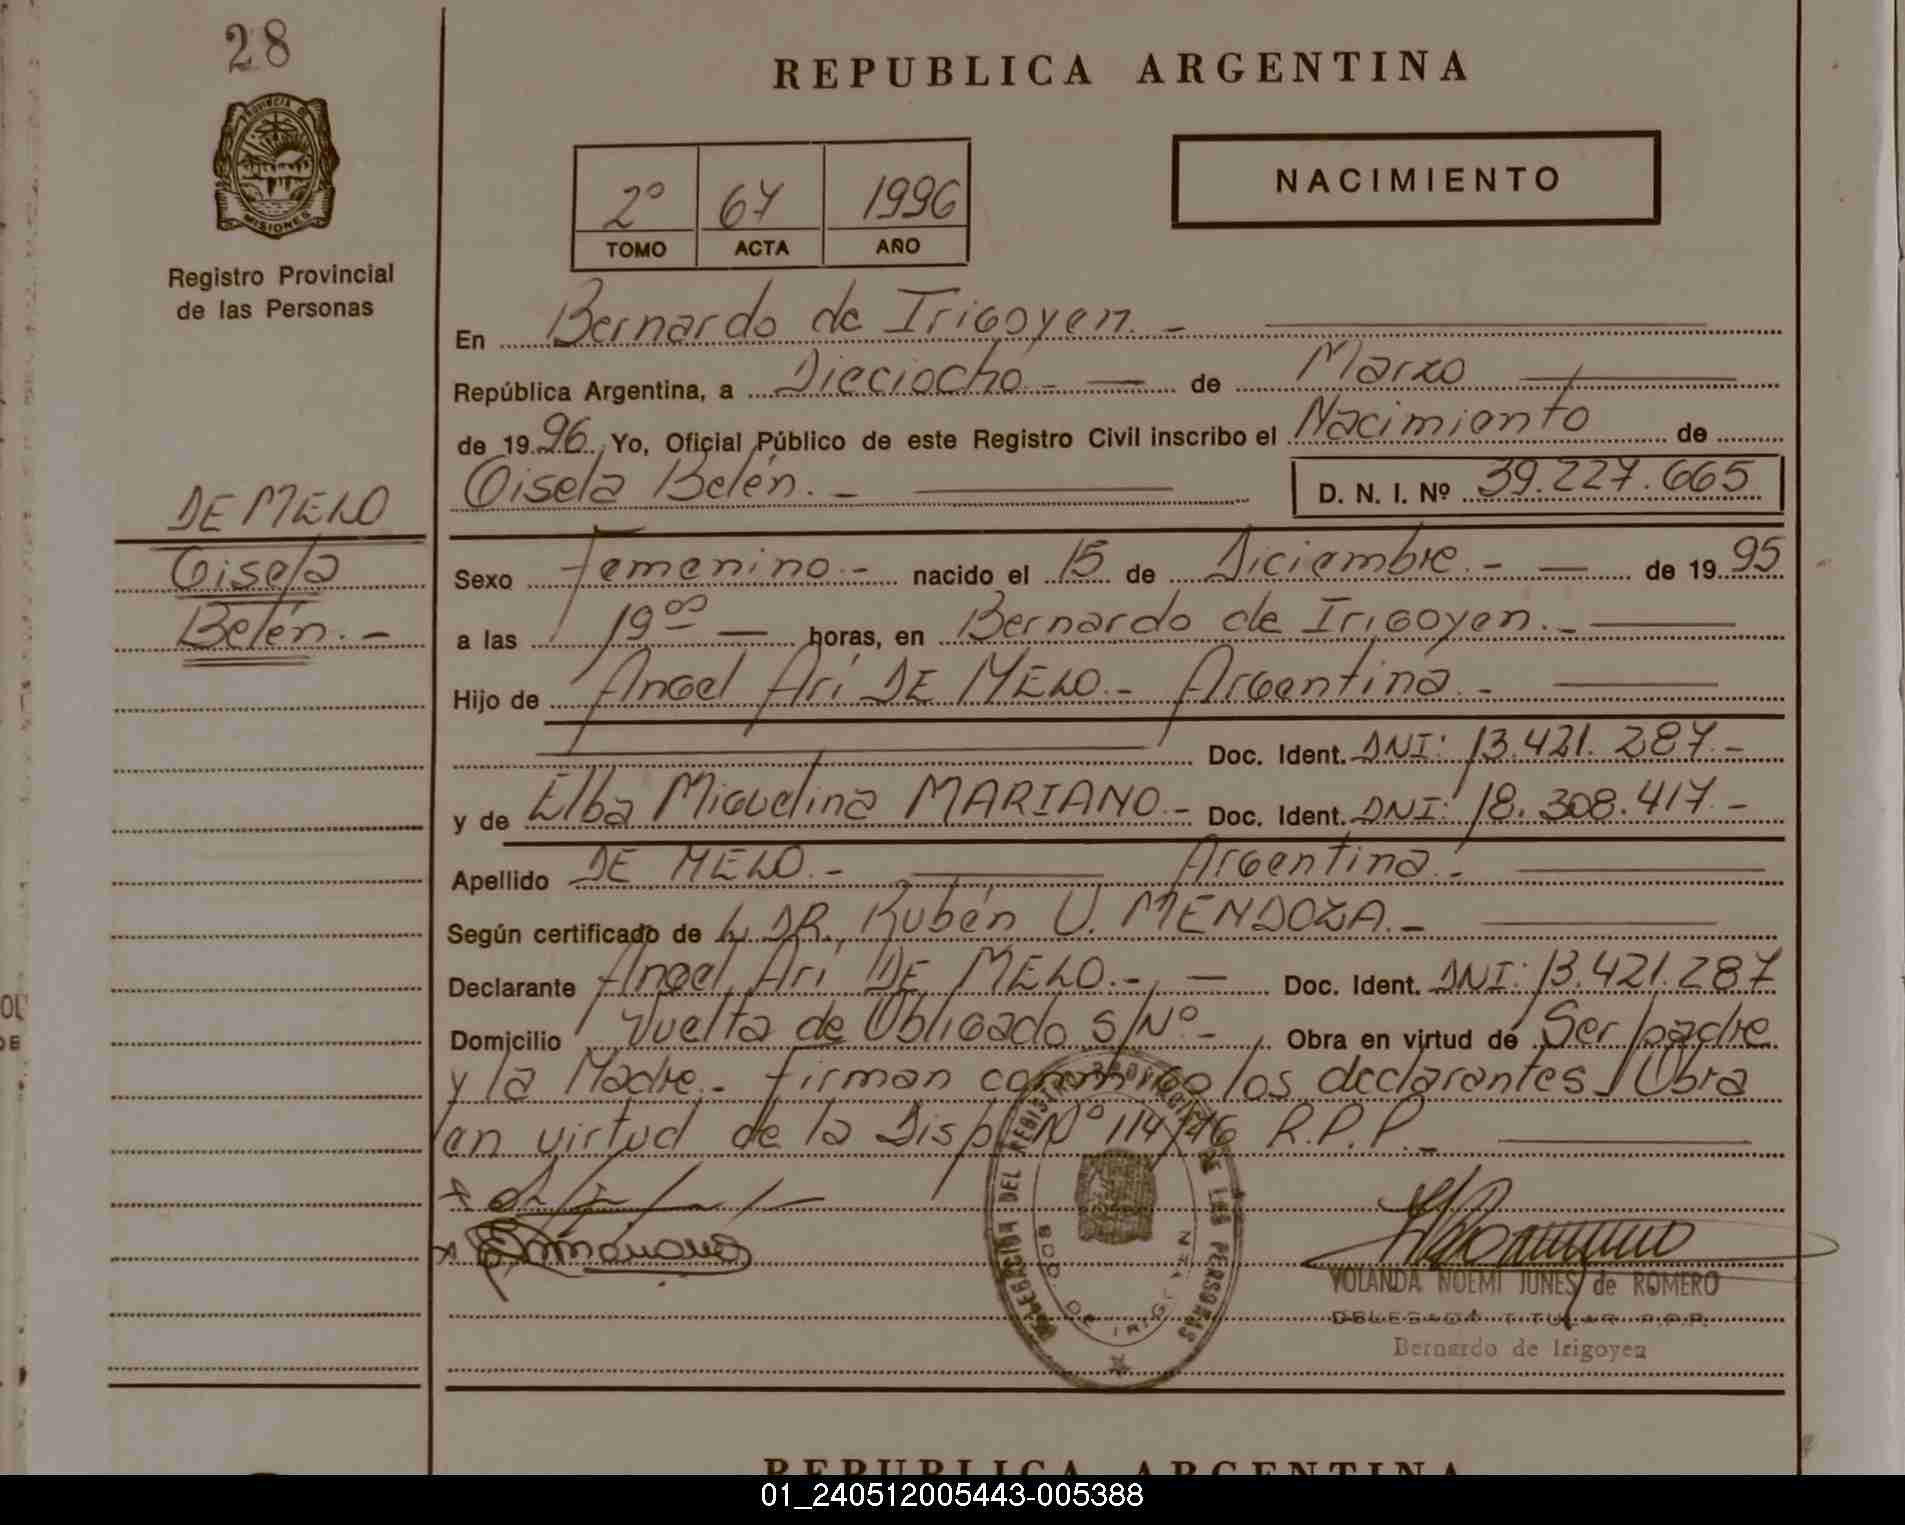 28
PROVINCIA DE
MISIONES
Registro Provincial
de las Personas
DE MELO
Gisela
Belén.-
REPUBLICA ARGENTINA
2º 67 1996
TOMO ACTA AÑO
NACIMIENTO
En Bernardo de Irigoyen.-
República Argentina, a Dieciocho.- de Marzo
de 1996. Yo, Oficial Público de este Registro Civil inscribo el Nacimiento de
Gisela Belén.- D. N. I. Nº 39.227.665
Sexo Femenino.- nacido el 15 de Diciembre.- de 1995
a las 19ºº horas, en Bernardo de Irigoyen.-
Hijo de Angel Arí DE MELO.- Argentina.-
Doc. Ident. DNI: 13.421.287.-
y de Elba Miguelina MARIANO.- Doc. Ident. DNI: 18.308.417.-
Apellido DE MELO.- Argentina.-
Según certificado de DR. Rubén U. MENDOZA.-
Declarante Angel Arí DE MELO.- Doc. Ident. DNI: 13.421.287
Domicilio Vuelta de Obligado S/Nº- Obra en virtud de Ser padre
y la Madre.- firman conmigo los declarantes Obra
en virtud de la Disp. Nº 114/46 R.P.P.-
DELEGACION DEL REGISTRO PROVINCIAL DE LAS PERSONAS
DE IRIGOYEN
YOLANDA NOEMI JUNES de ROMERO
DELEGADA TITULAR R.P.P.
Bernardo de Irigoyen
REPUBLICA ARGENTINA
01_240512005443-005388